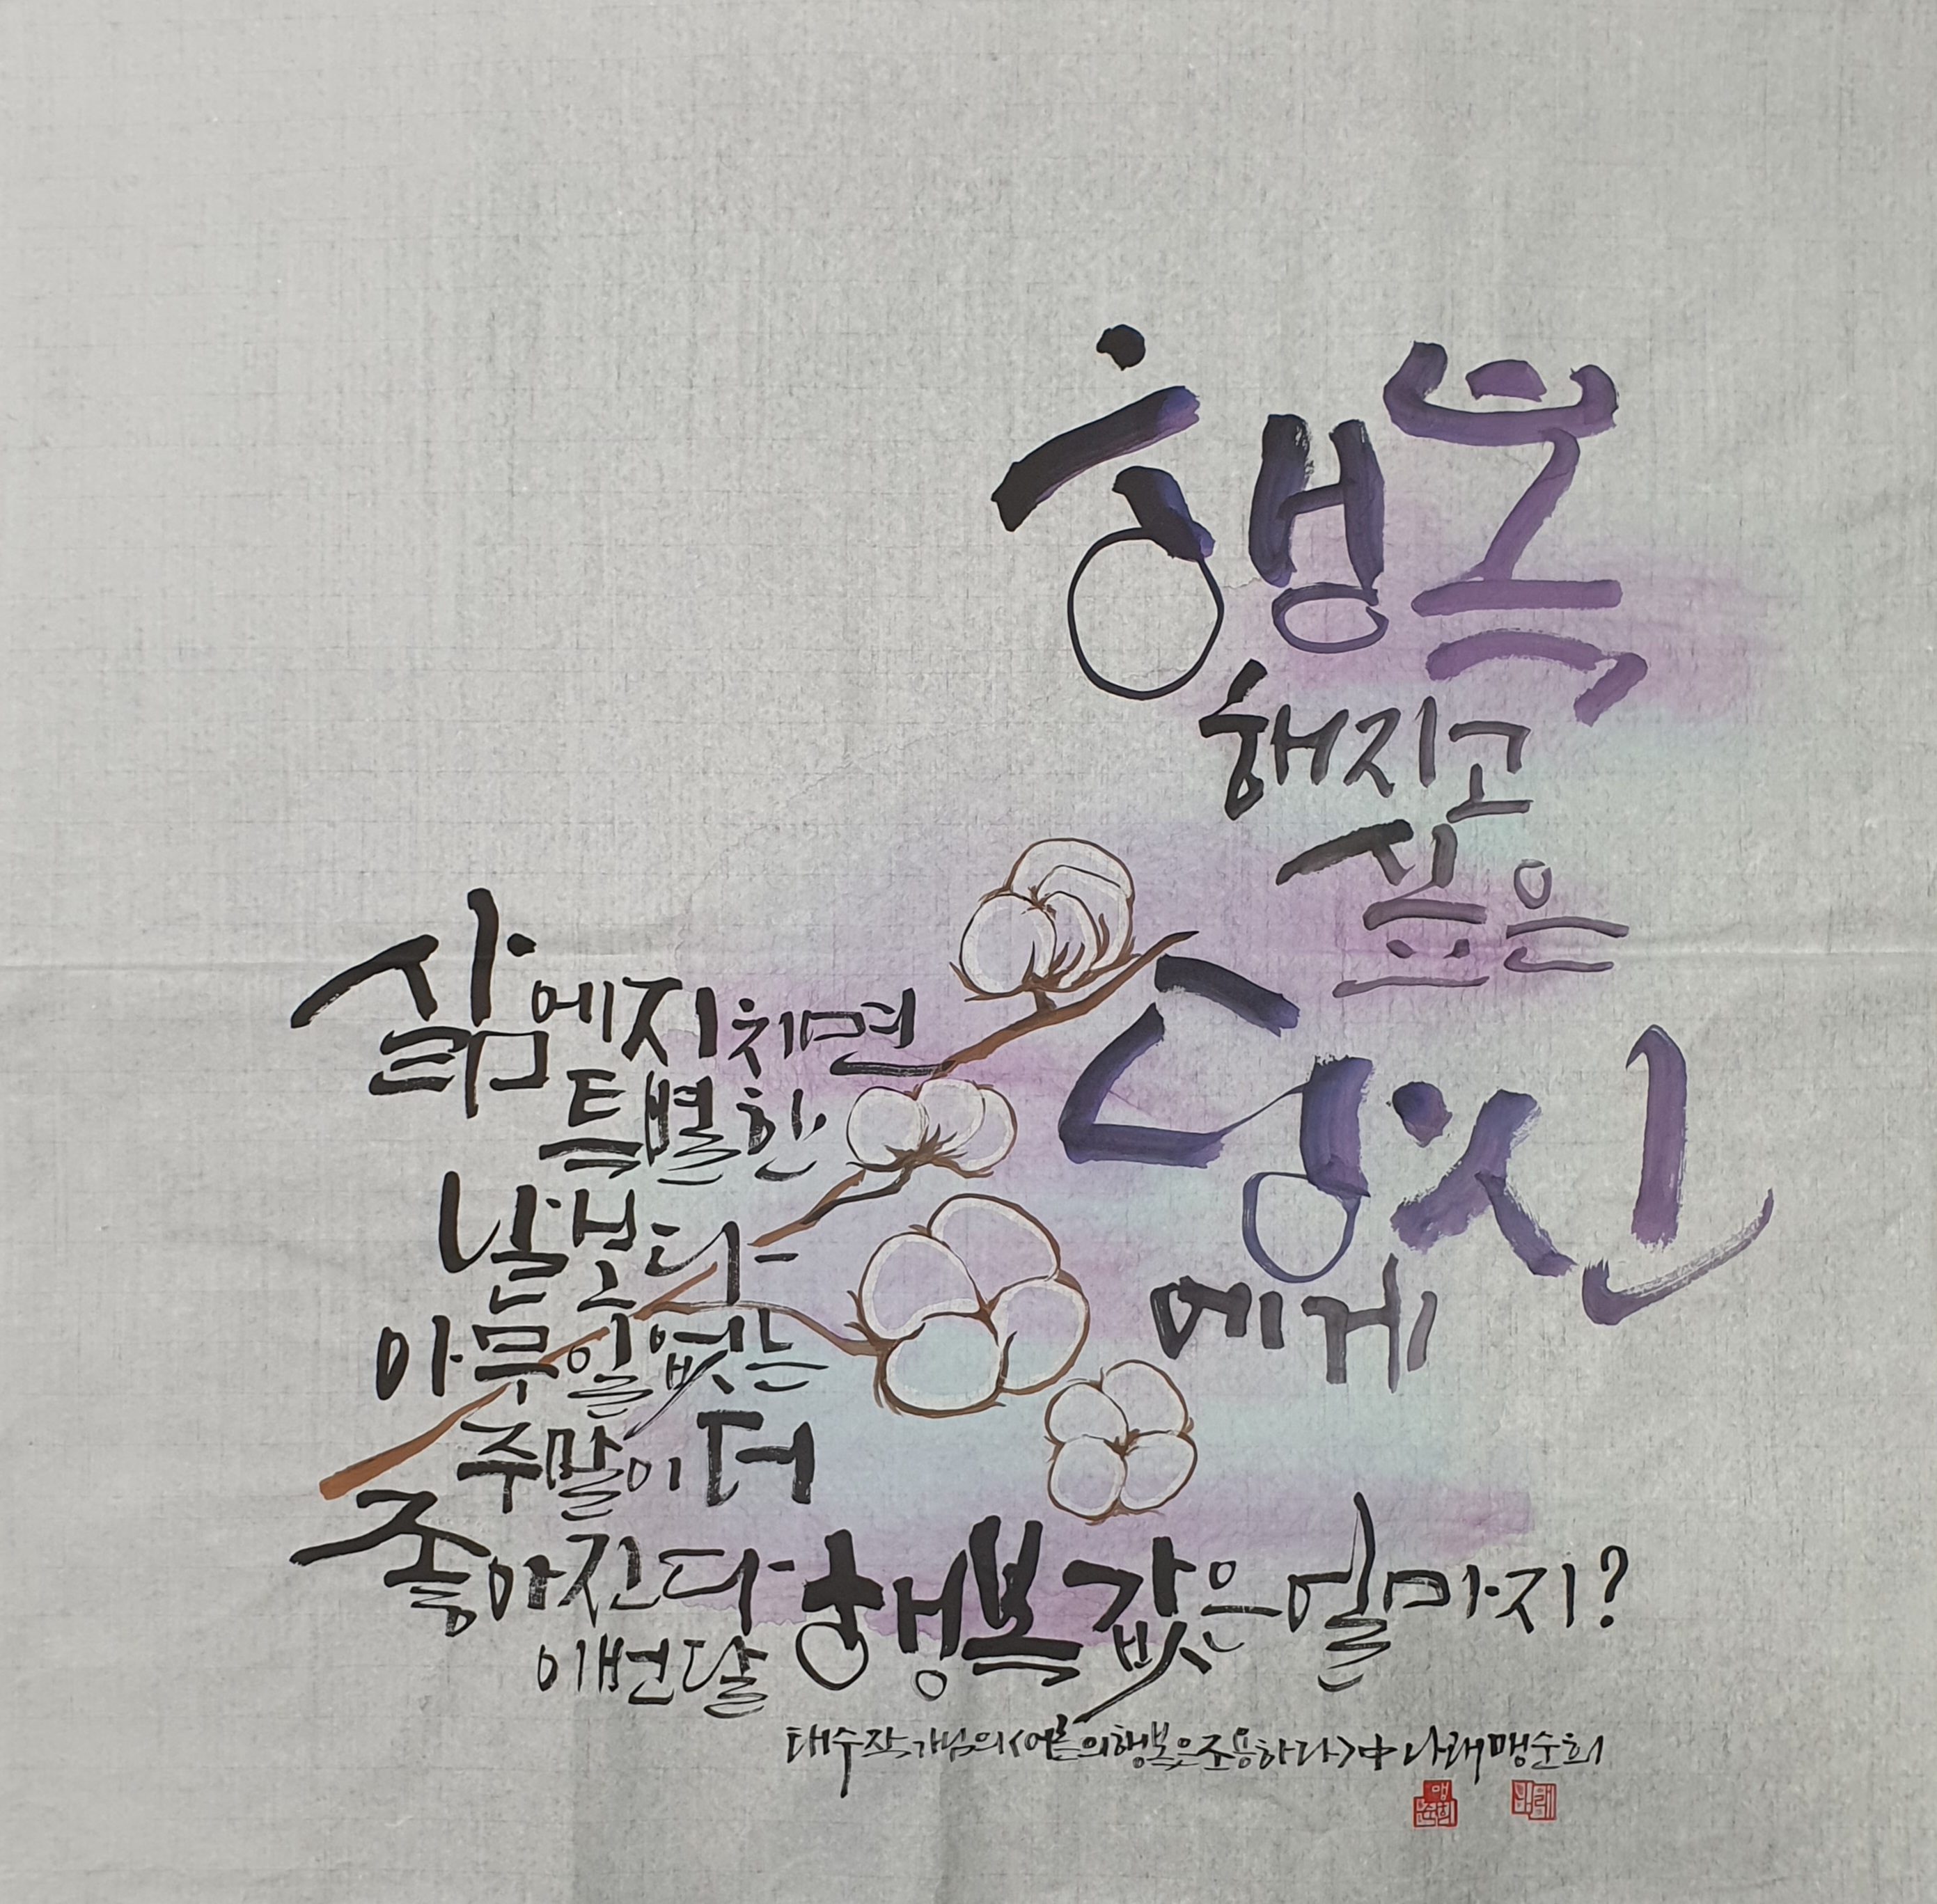 행복
해지고
싶은
당신
에게
삶에 지치면
특별한
날보다는
아무 일 없는
주말이 더
좋아진다
이번달 행복 값은 얼마지?
태수작가님의 <어른의 행복은 조용하다> 中 나래 맹순희
맹순희
나래